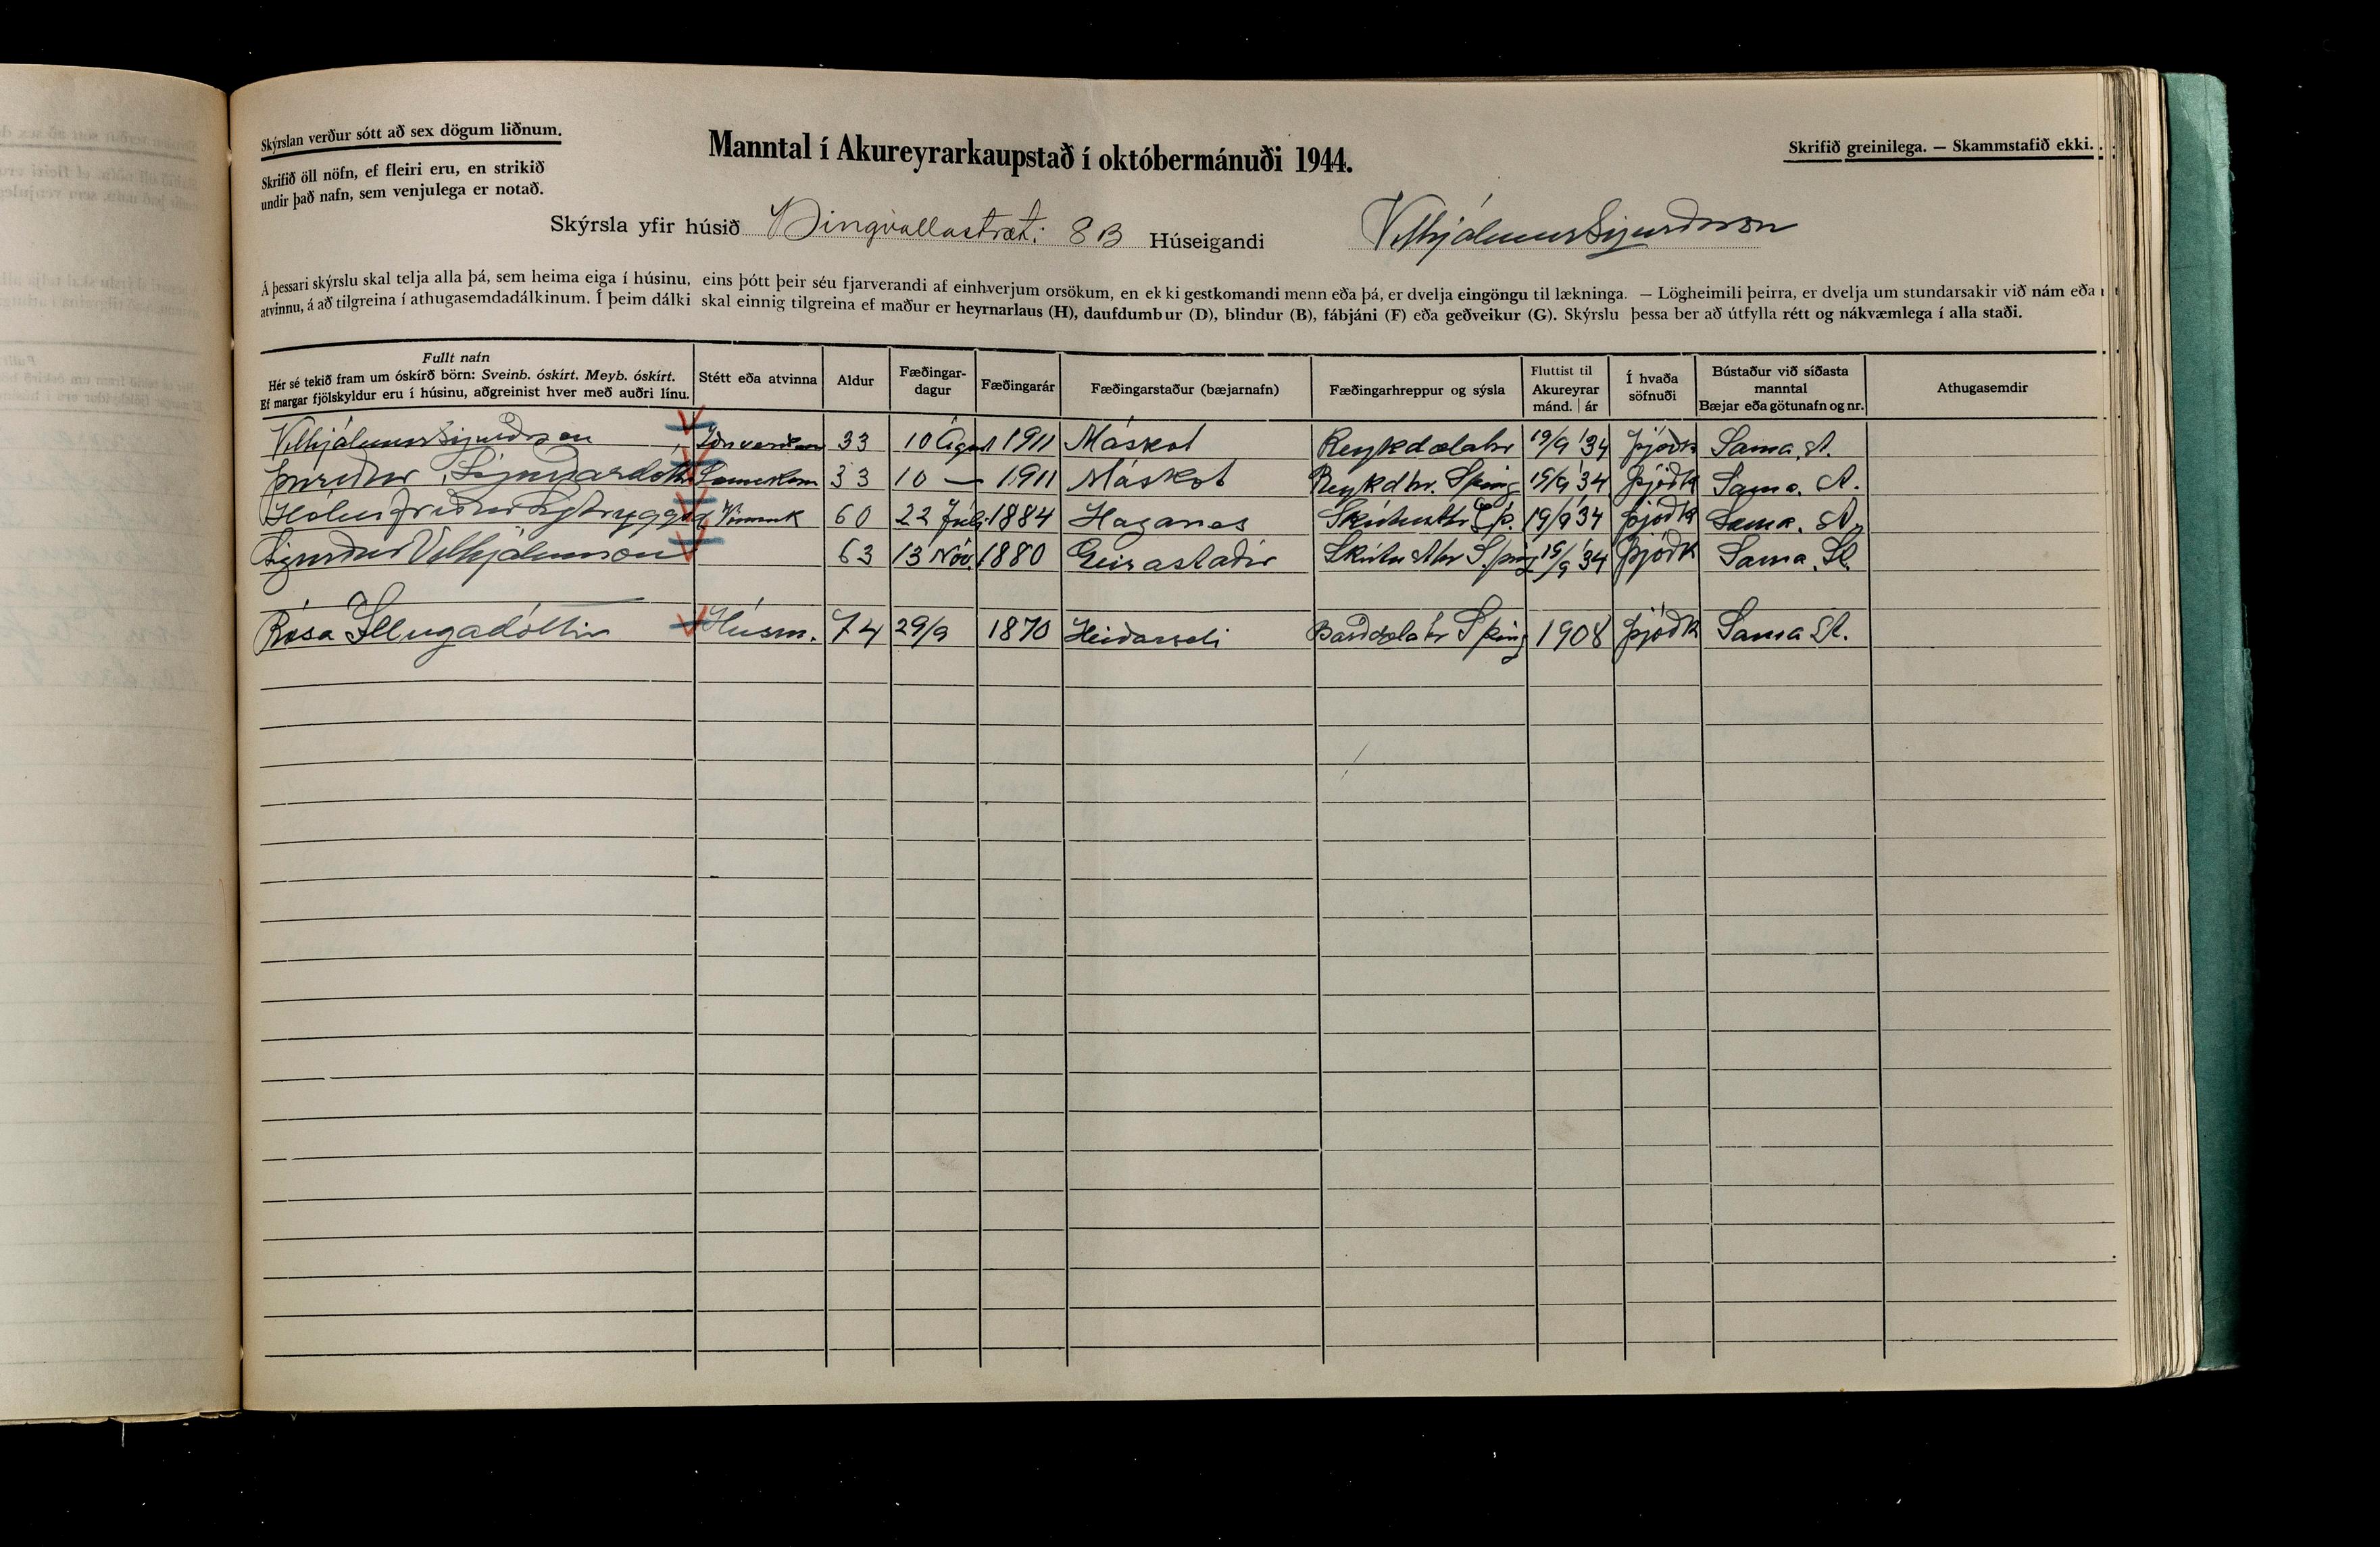 Skýrslan verður sótt að sex dögum liðnum.
Skrifið öll nöfn, ef fleiri eru, en strikið
undir það nafn, sem venjulega er notað.
Manntal í Akureyrarkaupstað í októbermánuði 1944.
Skrifið greinilega. — Skammstafið ekki.
Skýrsla yfir húsið Þingvallastræti 8B Húseigandi Vilhjálmur Sigurðsson
Á þessari skýrslu skal telja alla þá, sem heima eiga í húsinu, eins þótt þeir séu fjarverandi af einhverjum orsökum, en ekki gestkomandi menn eða þá, er dvelja eingöngu til lækninga. — Lögheimili þeirra, er dvelja um stundarsakir við nám eða
atvinnu, á að tilgreina í athugasemdadálkinum. Í þeim dálki skal einnig tilgreina ef maður er heyrnarlaus (H), daufdumbur (D), blindur (B), fábjáni (F) eða geðveikur (G). Skýrslu þessa ber að útfylla rétt og nákvæmlega í alla staði.
Fullt nafn
Hér sé tekið fram um óskírð börn: Sveinb. óskírt. Meyb. óskírt.
Ef margar fjölskyldur eru í húsinu, aðgreinist hver með auðri línu.
Stétt eða atvinna
Aldur
Fæðingar-
dagur
Fæðingarár
Fæðingarstaður (bæjarnafn)
Fæðingarhreppur og sýsla
Fluttist til
Akureyrar
mánd. | ár
Í hvaða
söfnuði
Bústaður við síðasta
manntal
Bæjar eða götunafn og nr.
Athugasemdir
Vilhjálmur Sigurðsson 33 10 Ágúst 1911 Máskot Reykdælahr 19/9 '34 Þjóðk Sama St.
Þuríður Sigurðardóttir 33 10 — 1911 Máskot Reykdhr. S þing 19/9 '34 Þjóðk Sama. St.
Hólmfríður Sigtryggsd 60 22 Júlí 1884 Haganes Skútusthr S þ. 19/9 '34 Þjóðk Sama. St.
Sigurður Vilhjálmsson 63 13 Nóv. 1880 Geirastaðir Skútusthr S. þing 19/9 '34 Þjóðk Sama. St.
Rósa Illugadóttir Húsm. 74 29/9 1870 Heiðarseli Bárðdælahr S þing 1908 Þjóðk Sama St.